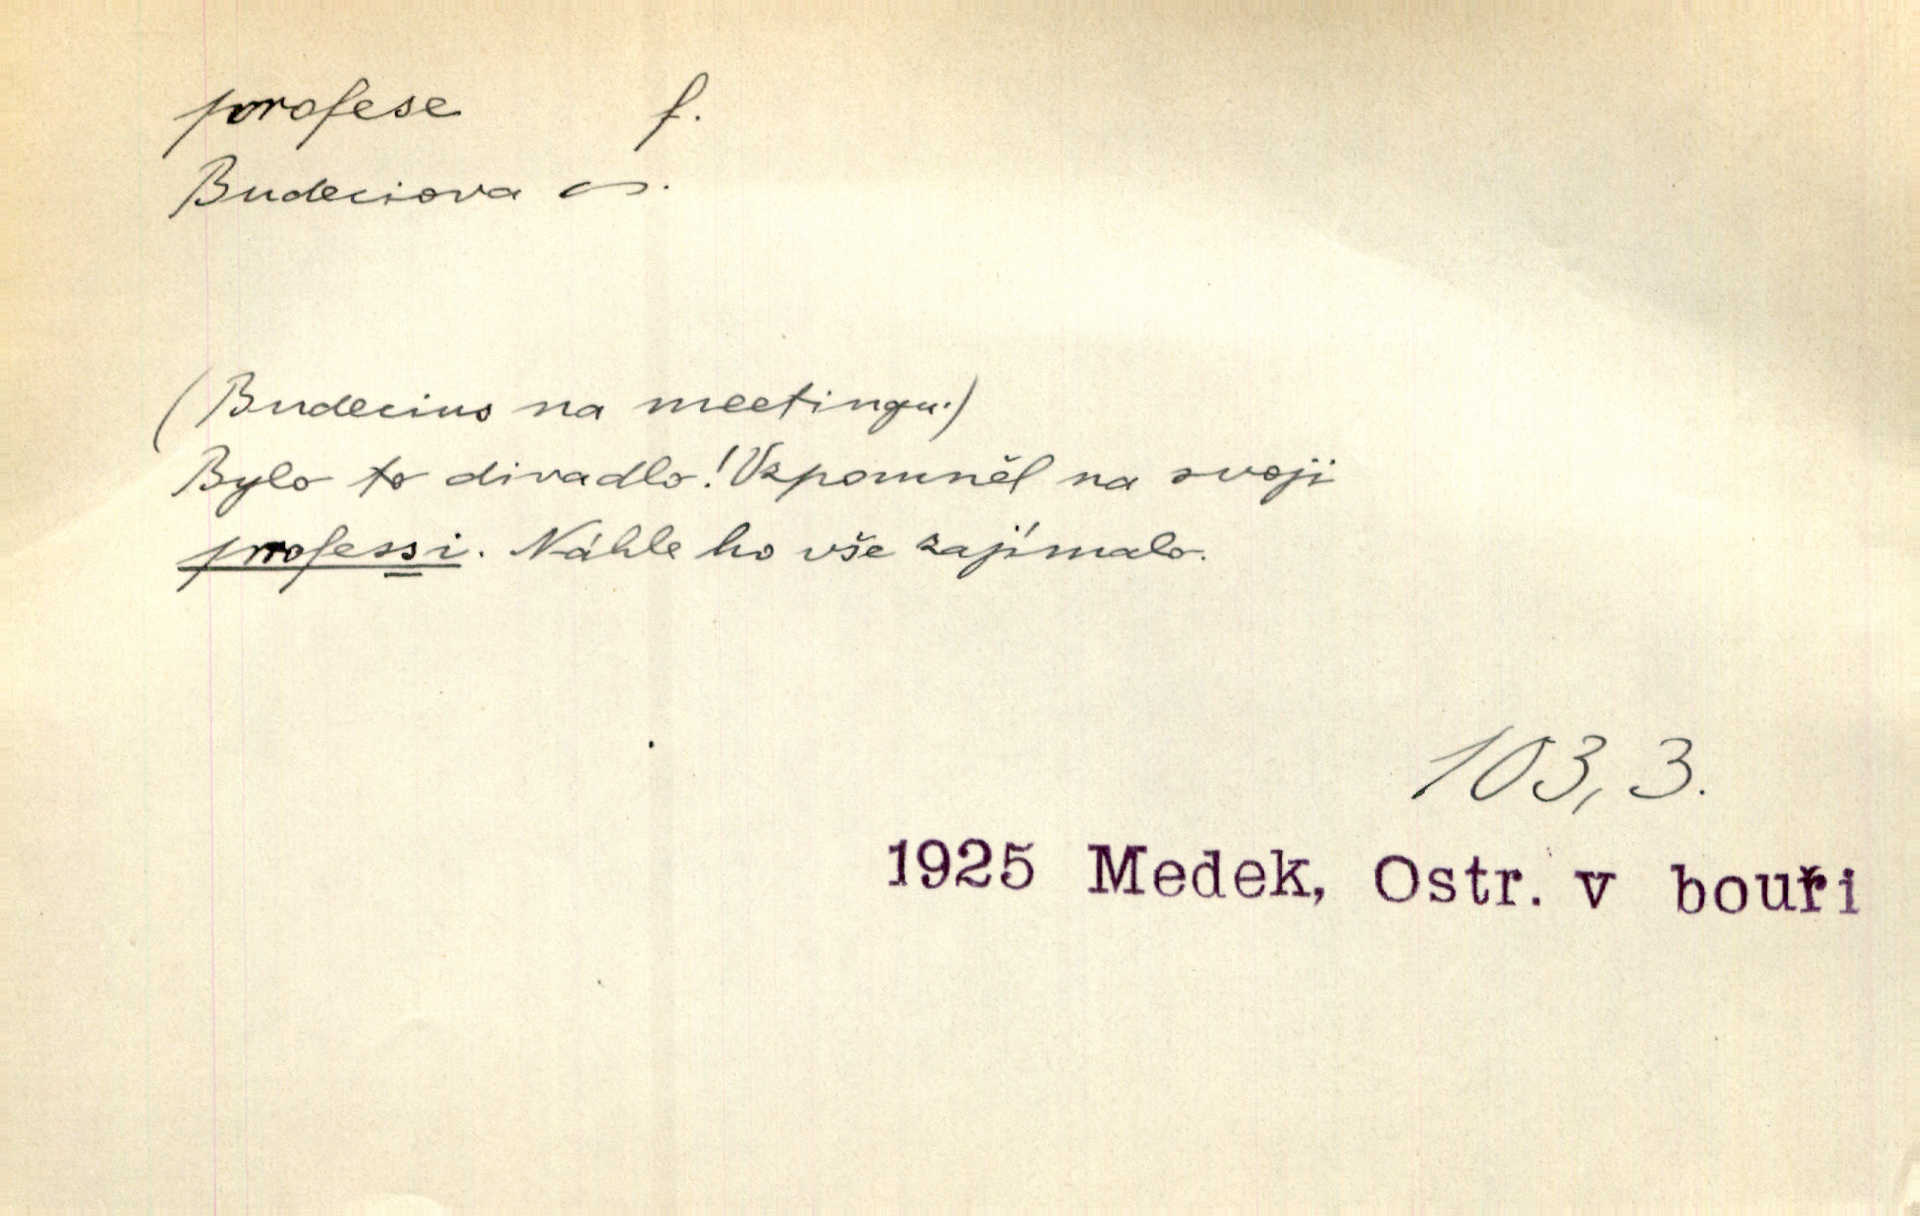 profese f.
Budeciova
(Budecius na meetingu.)
Bylo to divadlo! Vzpomněl na svoji
professi. Náhle ho vše zajímalo.
103,3.
1925 Medek, Ostr. v bouři